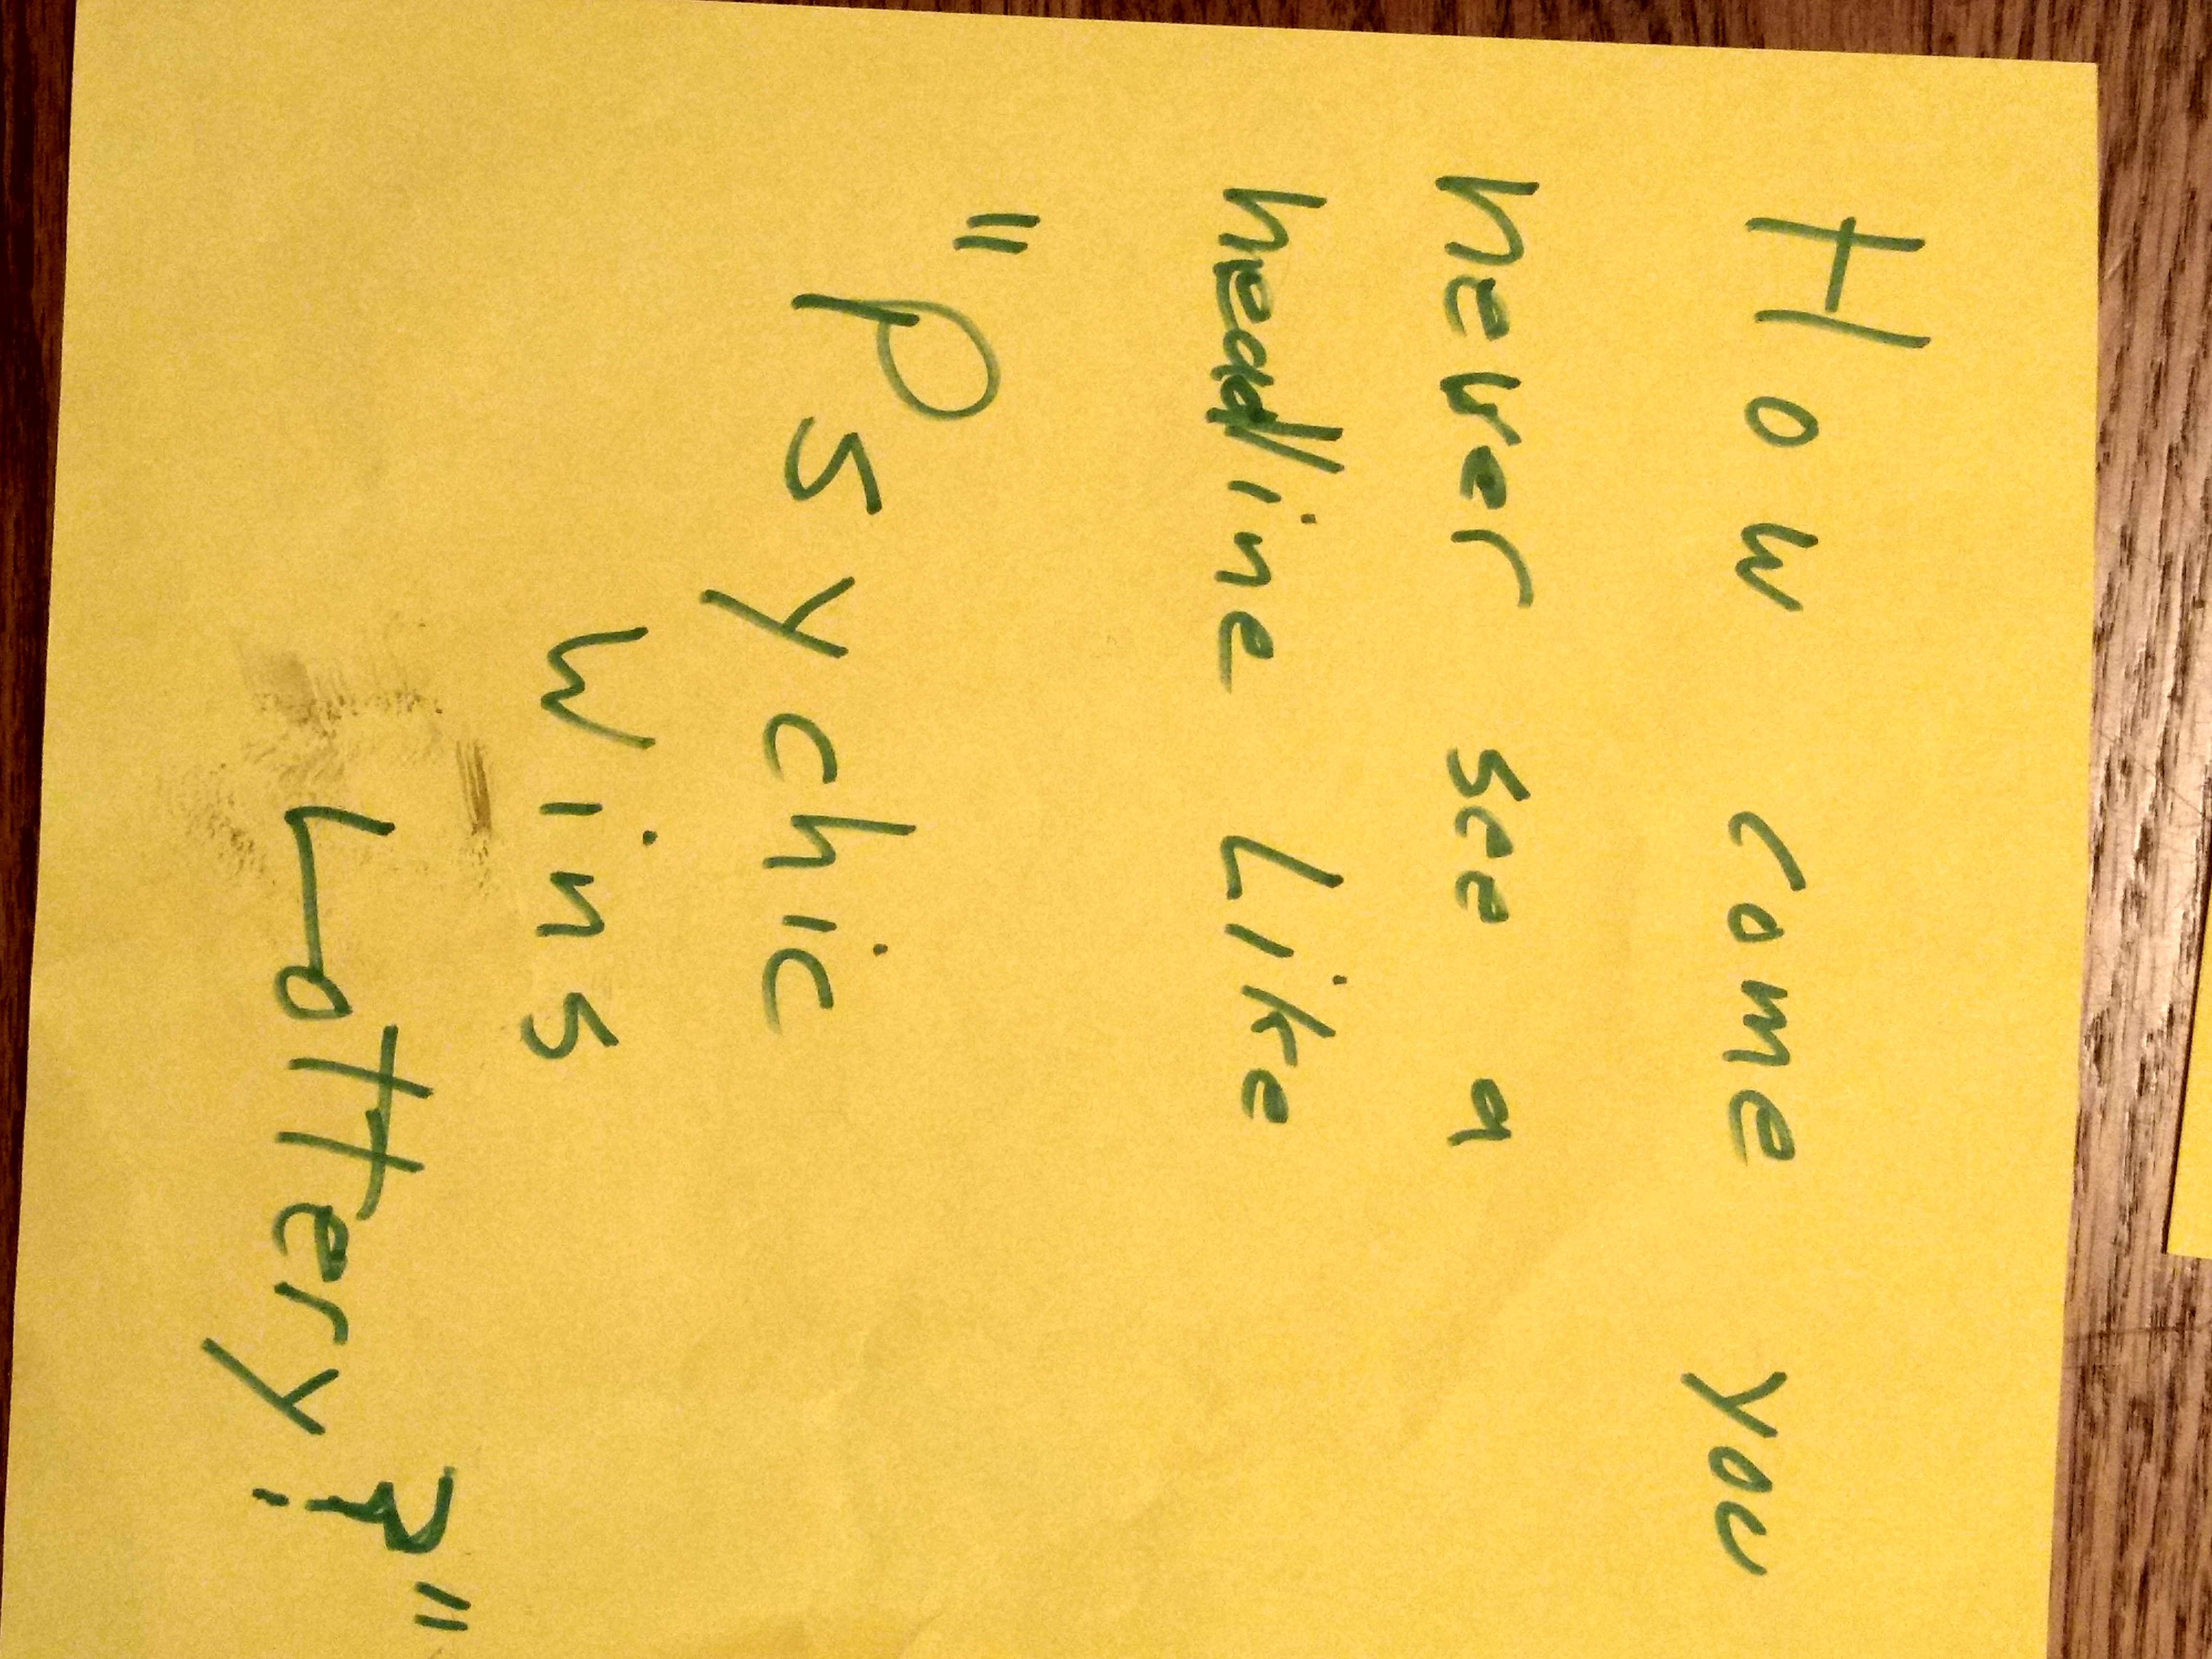 How come you
never see a
headline Like
"Psychic
Wins
Lottery?"